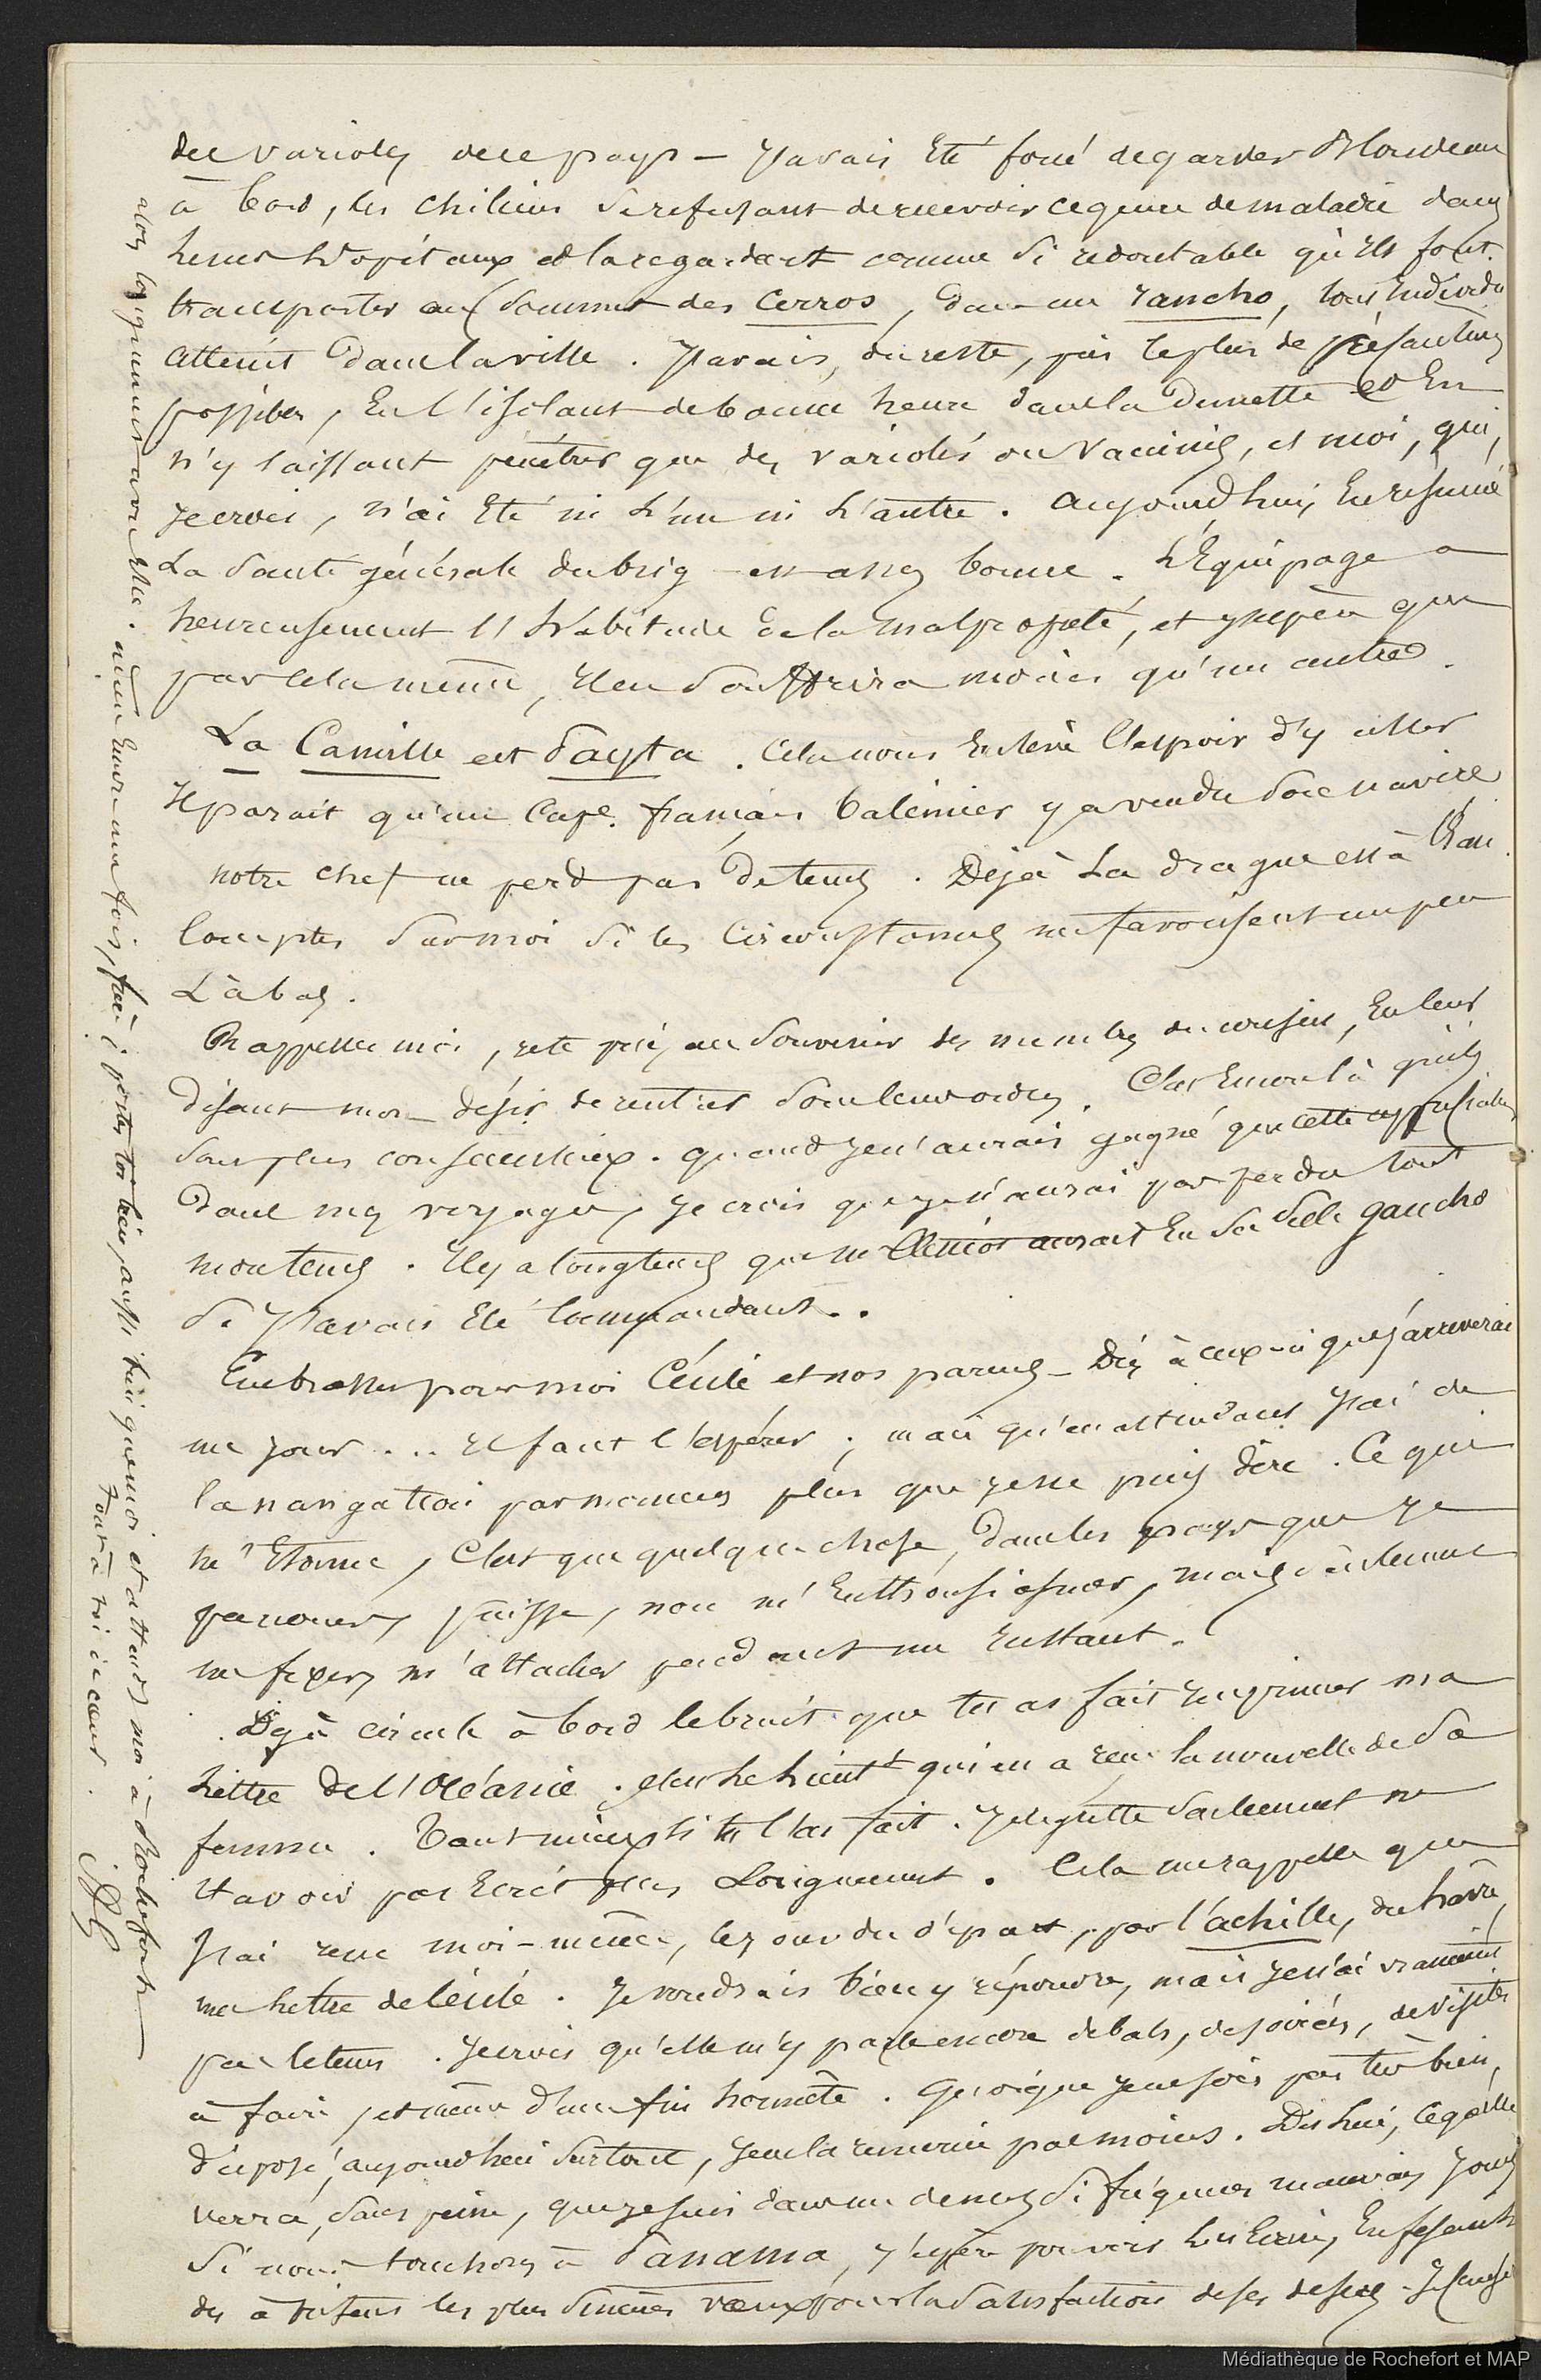 des varioles de ce pays — J'avais été forcé de garder Blondeau
à bord, les chiliens se refusant de recevoir ce genre de maladie dans
leurs hôpitaux et la regardant comme si redoutable qu'ils font
transporter au sommet des Cerros, dans un rancho, tout individu
atteint dans la ville. J'avais, du reste, pris le plus de précautions
possibles, en l'isolant de bonne heure dans la dunette et en
n'y laissant pénétrer que des variolés ou vaccinés, et moi, qui,
je crois, n'ai été ni l'un ni l'autre. Aujourd'hui, en résumé
La santé générale du brig est assez bonne. L'Equipage a
heureusement l'habitude de la malpropreté, et j'espère que
par cela même, il en souffrira moins qu'un autre.
La Camille est Payta. Cela nous enlève l'espoir d'y aller
Il paraît qu'un Cape. français baleinier y a vendu son navire
notre chef ne perd pas de tems. Déjà La drague est à l'eau.
Comptes sur moi si les circonstances me favorisent un peu
Là bas.
Rappelle moi, je te prie, au souvenir des membres du , en leur
disant mon désir de rentrer sous leurs ordres. C'est encore là qu'ils
sont plus consciencieux. quand je n'aurais gagné que cette appréciation
dans mes voyages, je crois que je n'aurai pas perdu tout
mon tems. Il y a longtems que m aurait eu sa selle gaucho
si j'avais été commandant..
Embrasses pour moi Cécile et nos parens — Dis à ceux-ci que j'arriverai
un jour... il faut l'espérer; mais qu'en attendant j'ai de
la navigation par momens plus que je ne puis dire. Ce qui
m'étonne, c'est que quelque chose, dans les pays que je
parcours, puisse, non m'enthousiasmer, mais seulement
me fixer, m'attacher pendant un instant.
Déjà circule à bord le bruit que tu as fait imprimer ma
Lettre de l'Océanie. C'est le Lieutt qui en a reçu la nouvelle de sa
femme. Tant mieux si tu l'as fait. Je regrette seulement ne
t'avoir pas écrit plus Longuement. Cela me rappelle que
J'ai reçu moi-même, le jour du départ, par l'achille, du havre,
une lettre de Cécile. Je voudrais bien y répondre, mais je n'ai vraiment
pas le tems. Je crois qu'elle m'y parle encore de bals, de soirées, de visites
à faire, et même d'une fin honnête. Quoique je ne sois pas très bien
disposé, aujourd'hui surtout, je ne la remercie pas moins. Dis lui, ce qu'elle
verra, sans peine, que je suis dans un de mes si fréquens mauvais jours
Si nous touchons à Panama, j'espère pouvoir lui écrire, en fesant
dès à présent les plus sincères vœux pour la satisfaction de ses désirs.
allons longuement avec elle. adieu encore une fois, frère; portes toi bien, aussi bien que moi et attends moi à Rochefort
Tout à toi de cœur.